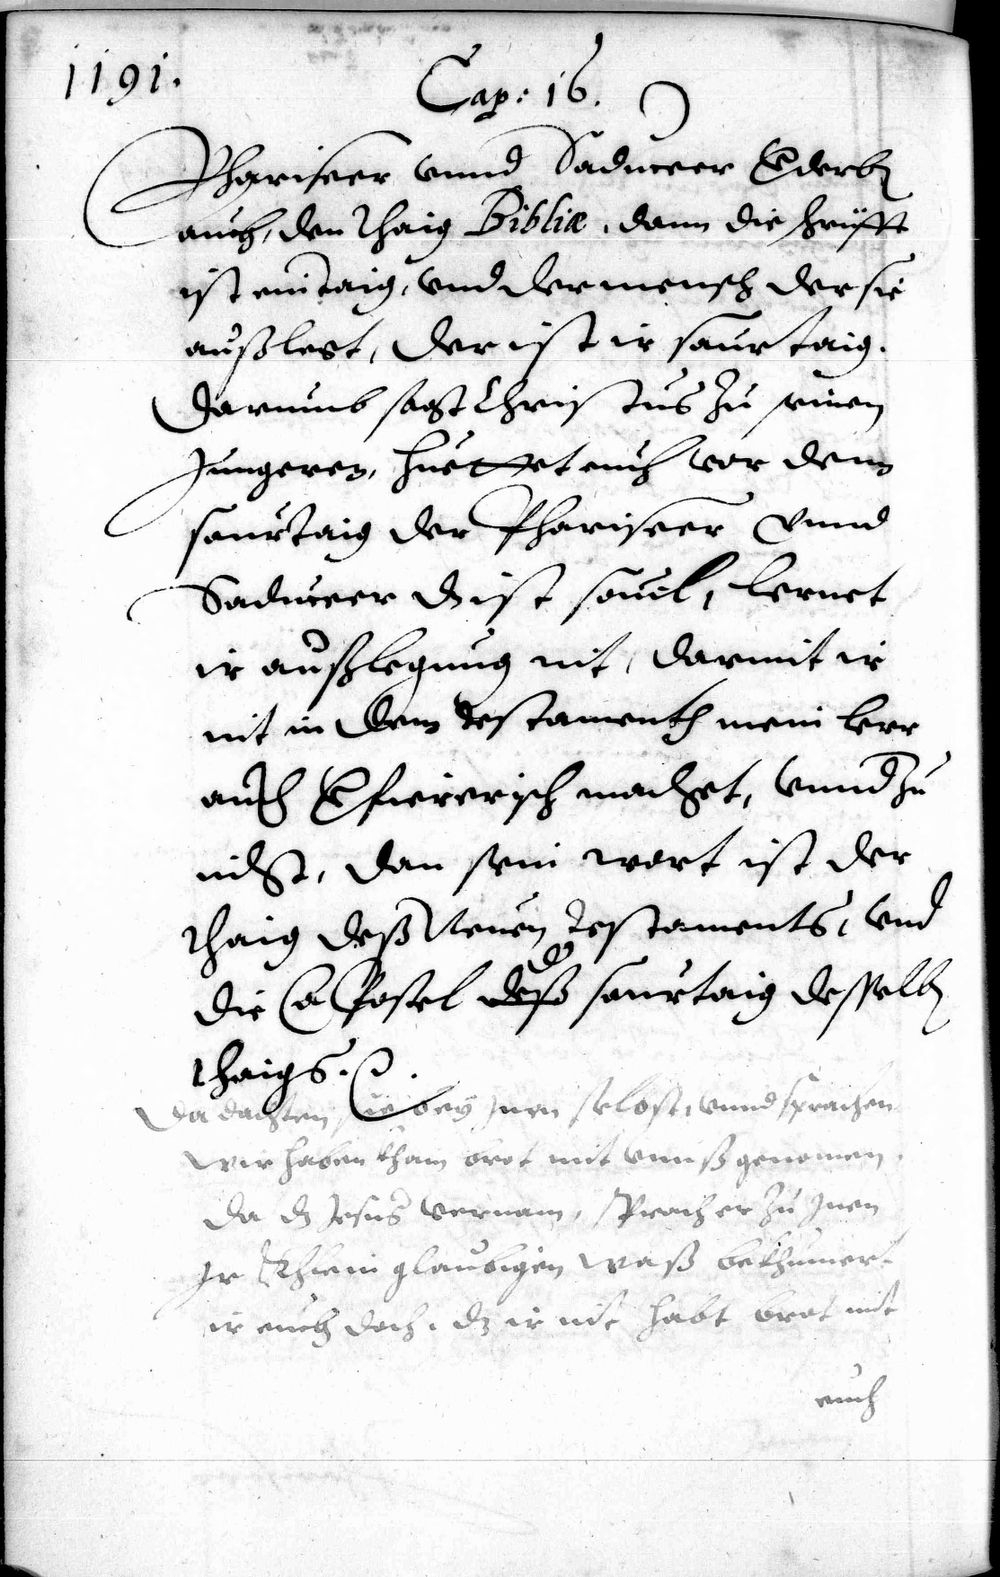 1191.
Cap: 16.
Phariseer vnnd Saduceer verderben
auch, den thaig Bibliæ, dann die schrifft
ist ein taig, vnd der mensch der sie
außlest, der ist ir saurtaig.
Darumb sagt Christus zu seinen
Jungeren, huettet euch vor dem
saurtaig der Phariseer vnnd
Saduceer dz ist souil, lernet
ir außlegung nit, darmit ir
nit in dem testamenth mein leer
auch machet, vnnd zu
nicht, dan sein wort ist der
thaig deß Neuen Testaments, vnd
die Apostel der saurtaig desselben
thaigs.
Da dachten sie bey jnen selbst, vnnd sprachen
wir haben khain brot mit vnnß genomen,
da dz Jesus vernam, sprach er zu Jnen
Jr khlein glaubigen waß bekhumert
ir euch doch, dz ir nit habt brot mit
euch